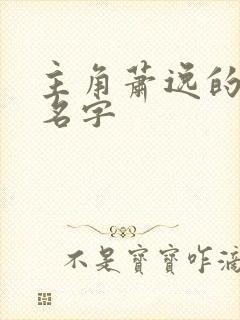 主角萧逸的
名字
不是寶寶咋滴